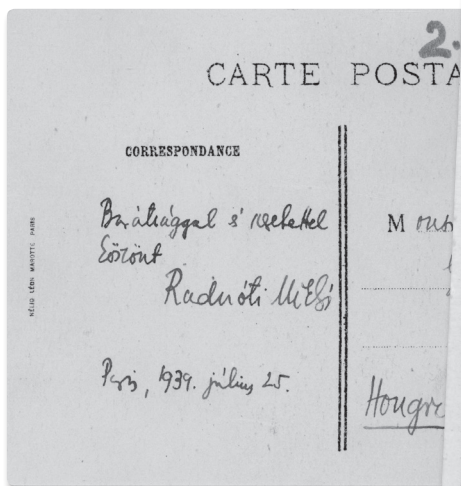 2.
CARTE POSTA
CORRESPONDANCE
Barátsággal s' szeretettel
köszönt
Radnóti Miklós
Paris, 1939. július 25.
HÉLIO LÉON MAROTTE PARIS
M
Hongr